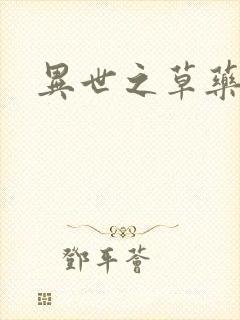 異世之草藥
鄧平薈